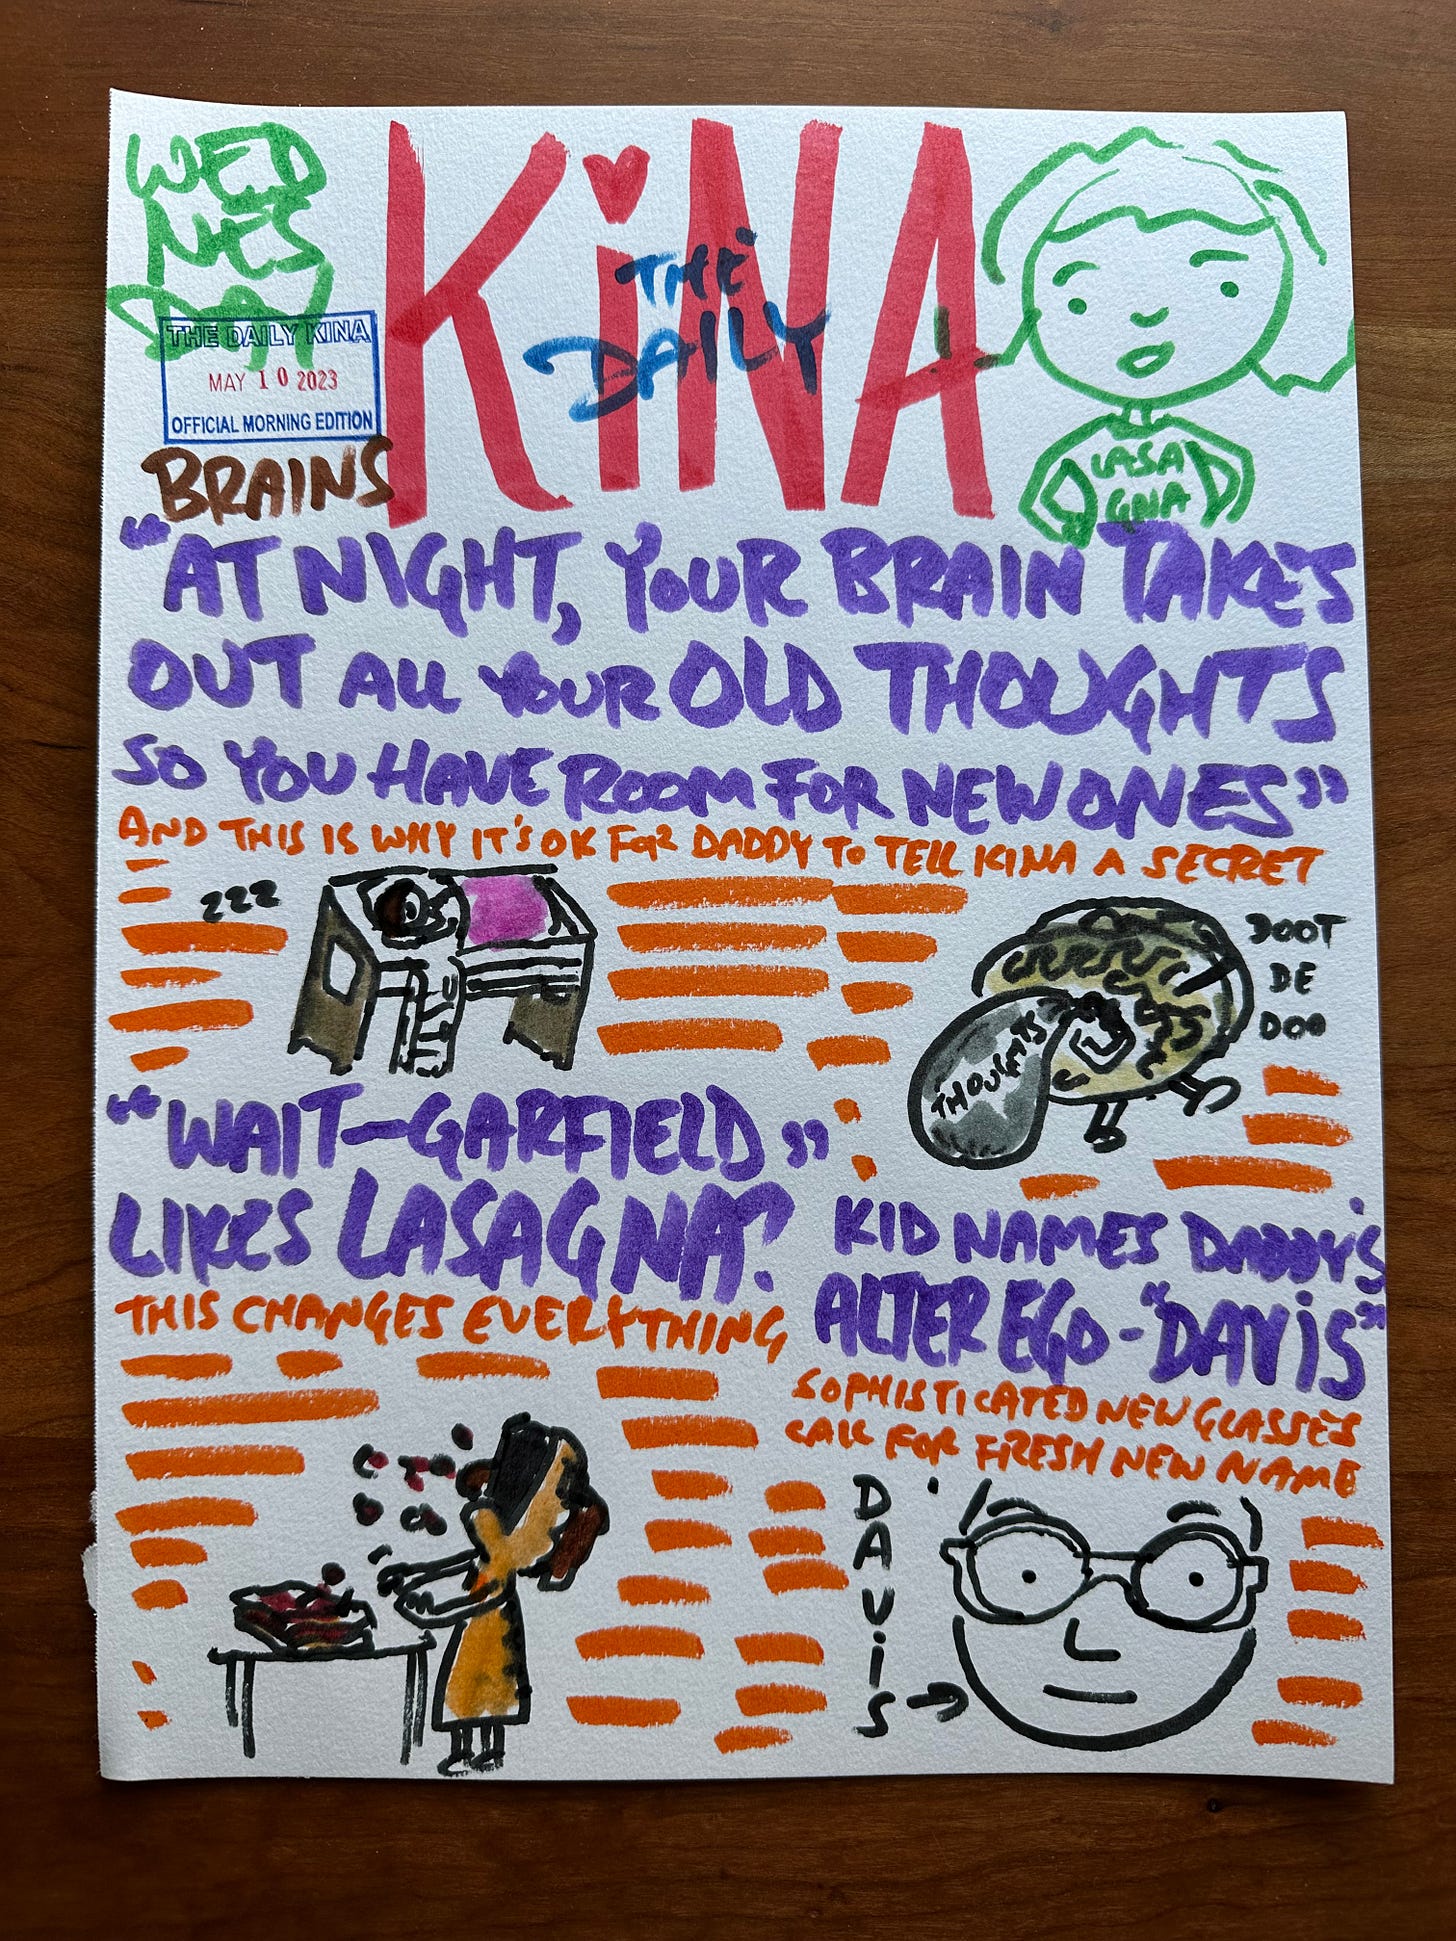 WED
NES
DAY
KiNA
THE
DAILY
THE DAILY KINA
MAY 10 2023
OFFICIAL MORNING EDITION
LASA
GNA
BRAINS
"AT NIGHT, YOUR BRAIN TAKES
OUT ALL YOUR OLD THOUGHTS
SO YOU HAVE ROOM FOR NEW ONES"
AND THIS IS WHY IT'S OK FOR DADDY TO TELL KINA A SECRET
ZZZ
THOUGHTS
DOOT
DE
DOO
"WAIT—GARFIELD"
LIKES LASAGNA?
THIS CHANGES EVERYTHING
KID NAMES DADDY'S
ALTER EGO - "DAViS"
SOPHISTICATED NEW GLASSES
CALL FOR FRESH NEW NAME
DAViS